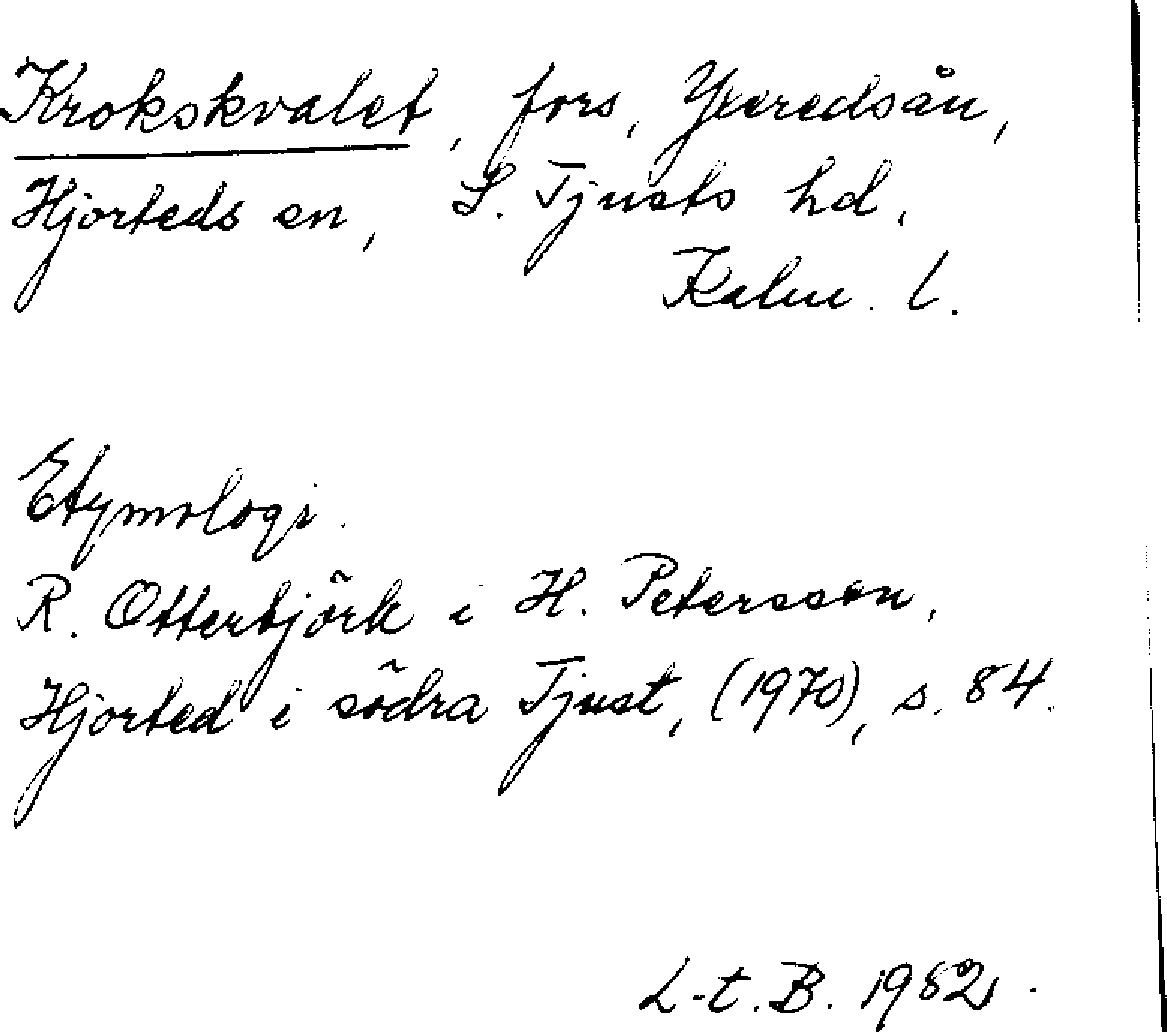 Krokskvalet, fors, Yxeredsån,
Hjorteds sn, S. Tjusts hd,
Kalm. l.
Etymologi.
R. Otterbjörk i H. Petersson,
Hjorted i södra Tjust, (1970), s. 84.
L-t. B. 1982.